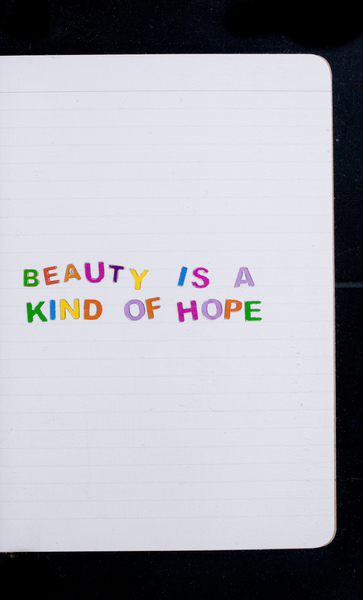 BEAUTY IS A
KIND OF HOPE